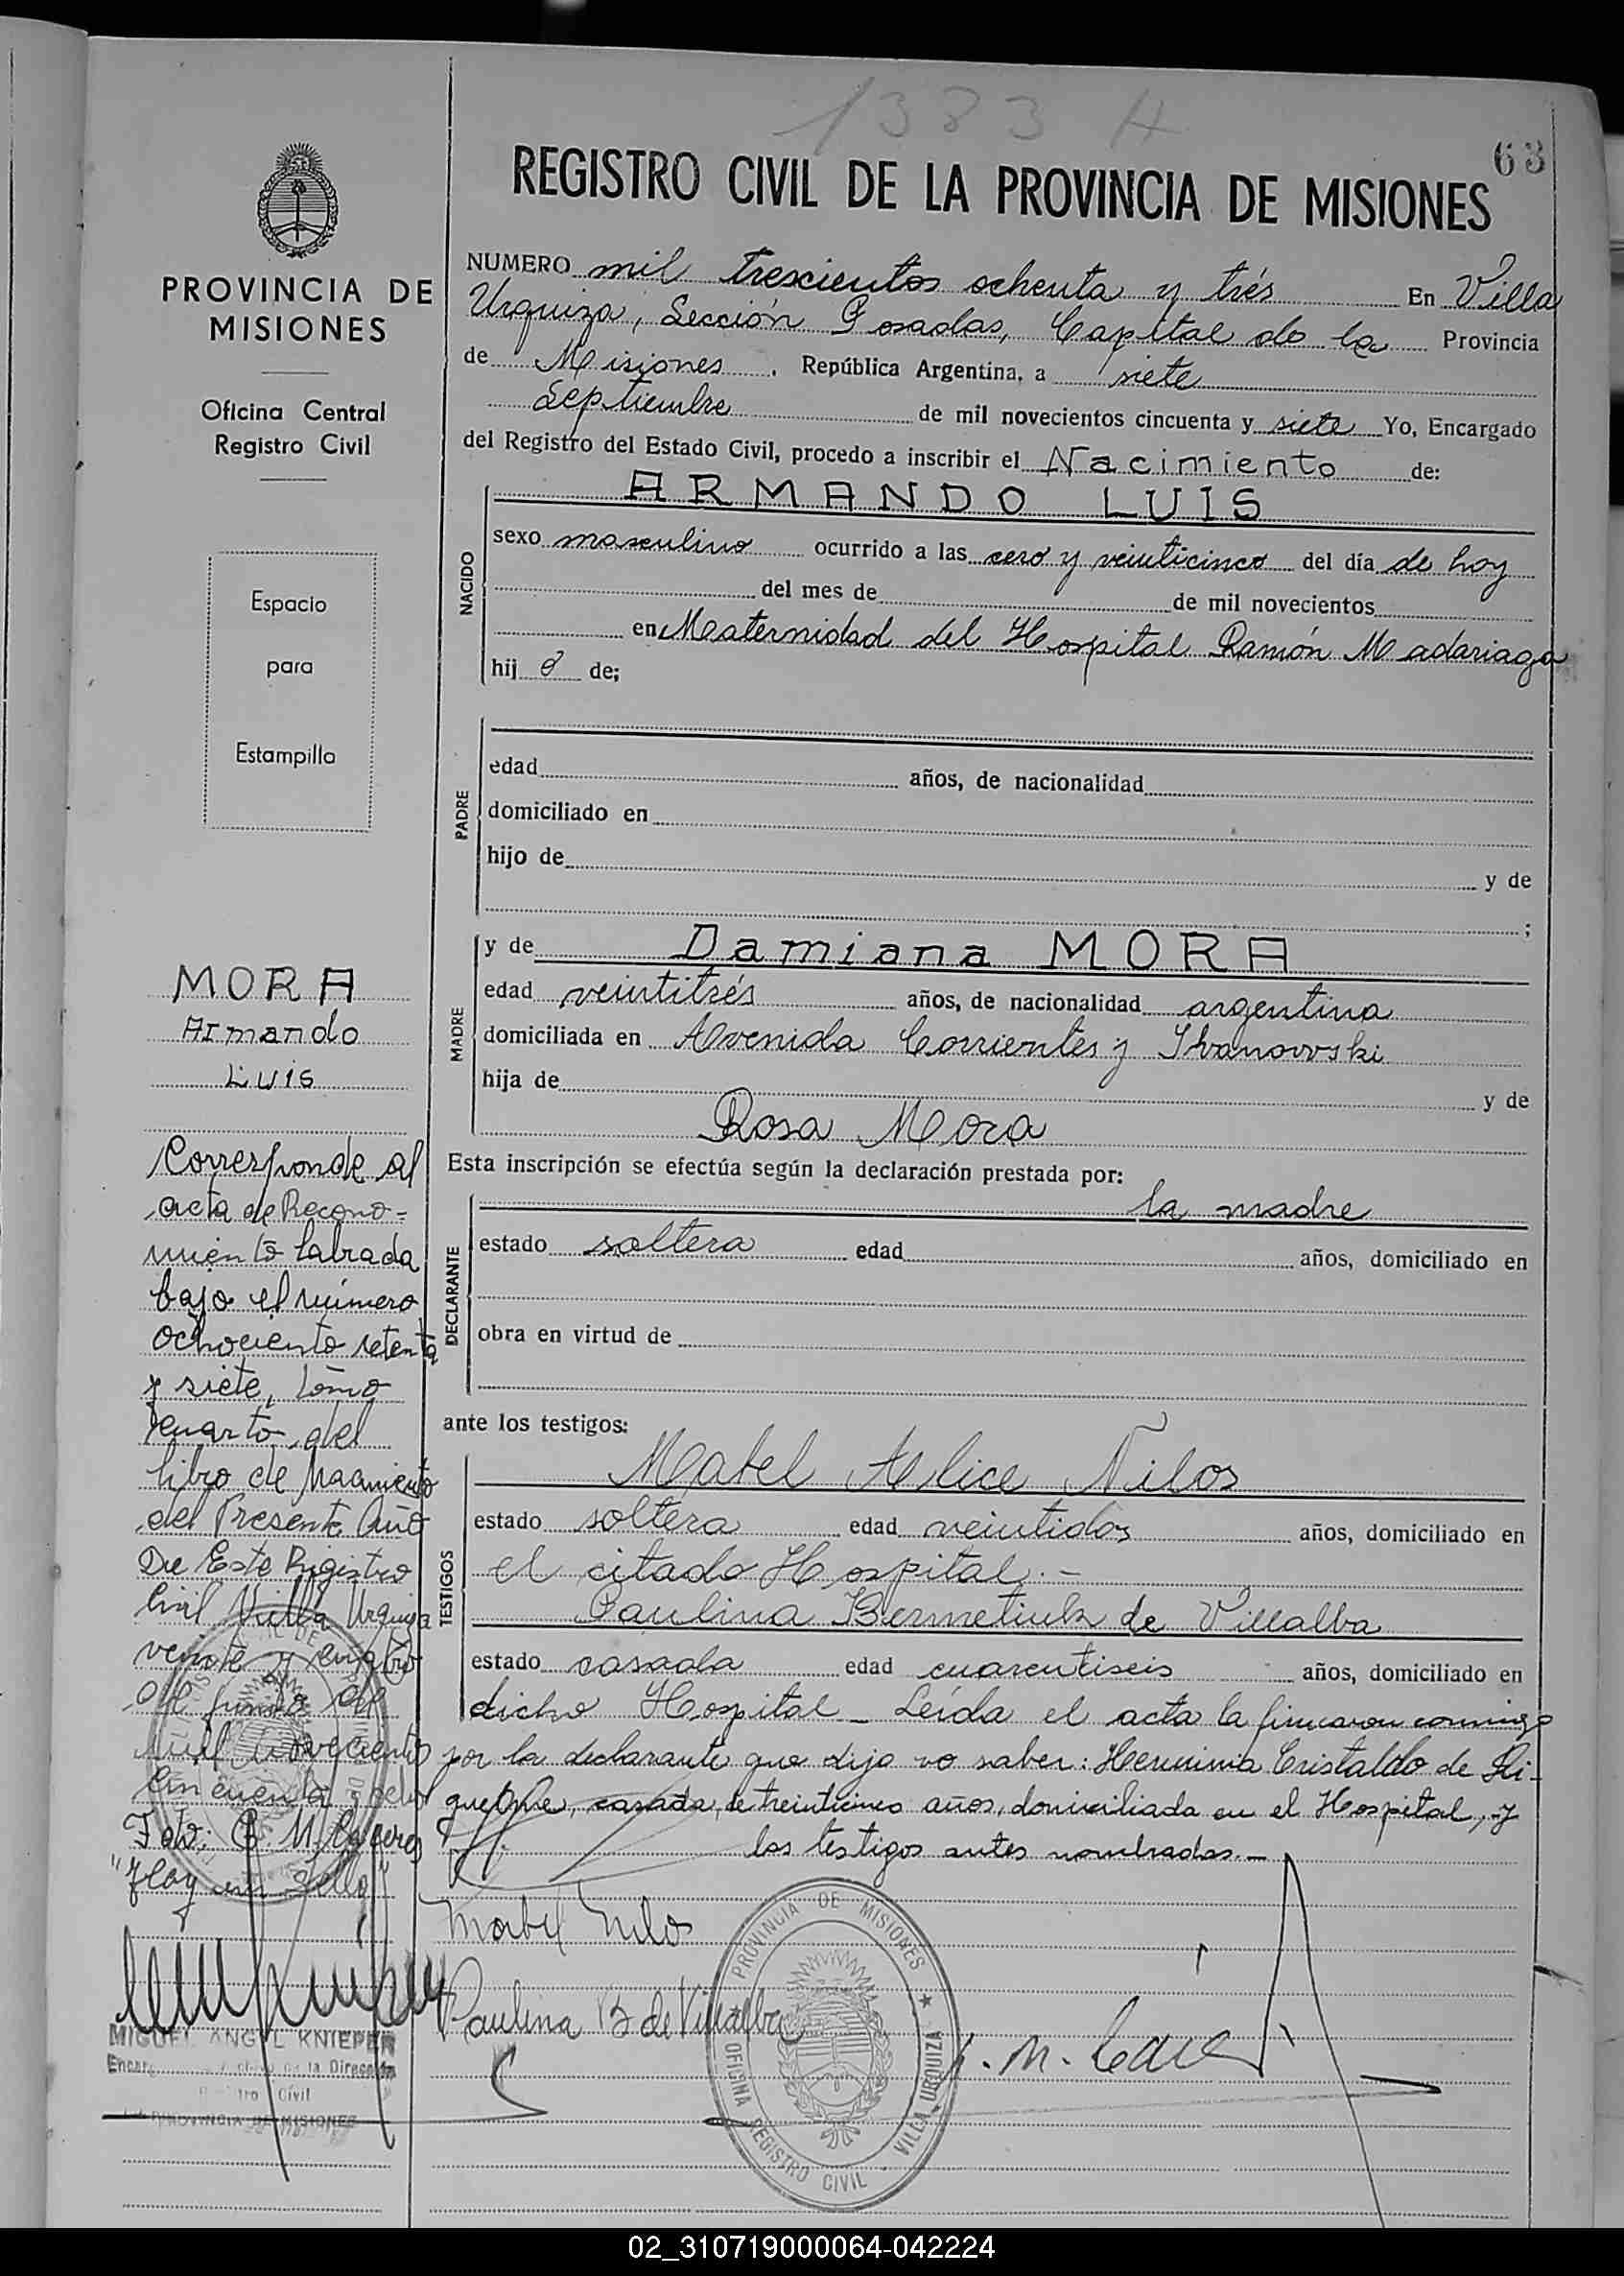 1383 A
63
REGISTRO CIVIL DE LA PROVINCIA DE MISIONES
PROVINCIA DE
MISIONES
Oficina Central
Registro Civil
Espacio
para
Estampilla
NUMERO mil trescientos ochenta y trés En Villa
Urquiza, Sección Posadas, Capital de la Provincia
de Misiones, República Argentina, a siete
Septiembre de mil novecientos cincuenta y siete Yo, Encargado
del Registro del Estado Civil, procedo a inscribir el Nacimiento de:
NACIDO
ARMANDO LUIS
sexo masculino ocurrido a las cero y veinticinco del día de hoy
del mes de de mil novecientos
en Maternidad del Hospital Ramón Madariaga
hijo de;
PADRE
edad años, de nacionalidad
domiciliado en
hijo de y de
;
MADRE
y de Damiana MORA
edad veintitrés años, de nacionalidad argentina
domiciliada en Avenida Corrientes y Ivanowski
hija de y de
Rosa Mora
Esta inscripción se efectúa según la declaración prestada por:
DECLARANTE
la madre
estado soltera edad años, domiciliado en
obra en virtud de
ante los testigos:
TESTIGOS
Mabel Alice Nilos
estado soltera edad veintidos años, domiciliado en
el citado Hospital.-
Paulina Bermetiuk de Villalba
estado casada edad cuarentiseis años, domiciliado en
dicho Hospital _ Leída el acta la firmaron conmigo
por la declarante que dijo no saber: Herminia Cristaldo de
casada, de treinticinco años, domiciliada en el Hospital, y
los testigos antes nombrados.-
Mabel Nilos
Paulina B de Villalba
PROVINCIA DE MISIONES
OFICINA REGISTRO CIVIL VILLA URQUIZA
MORA
Armando
Luis
Corresponde al
acta de Recono=
miento labrada
bajo el número
ochociento setenta
y siete, tomo
cuarto, del
libro de Nacimiento
del Presente Año
De Este Rigistro
Civil Villa Urquiza
veinte y cuatro
de junio de
mil novecientos
cincuenta y ocho
Fdo; G. M. Caceres
"Hay un Sello"
MIGUEL ANGEL KNIEPER
de la Dirección
Civil
PROVINCIA DE MISIONES
02_310719000064-042224